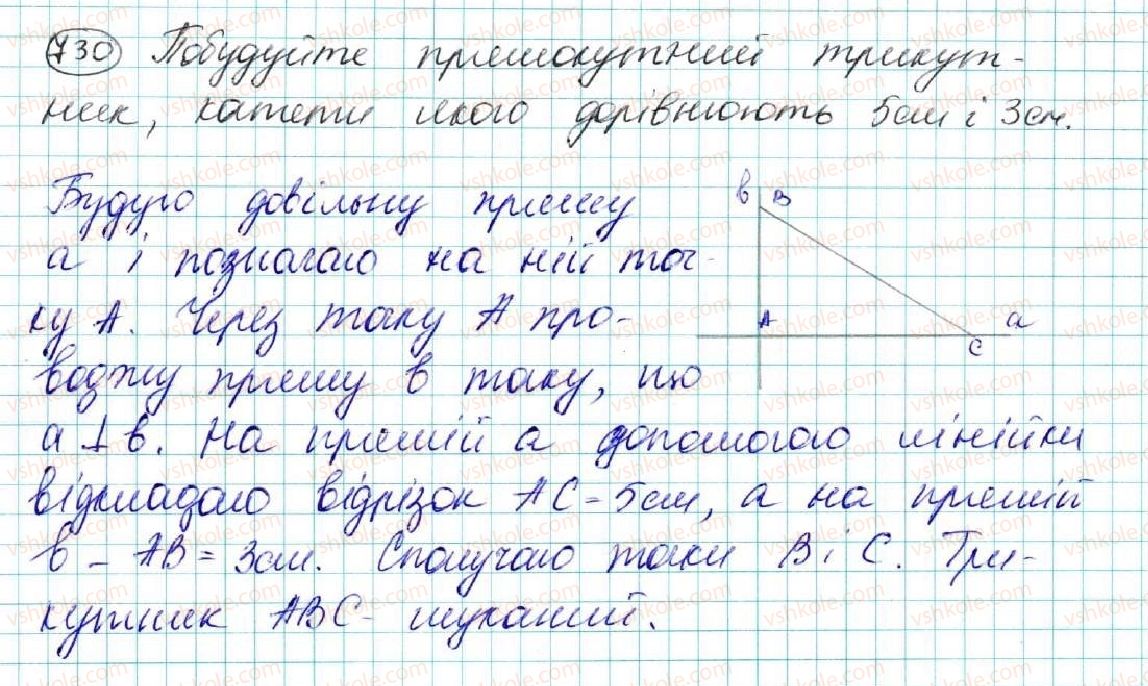 730 Побудуйте прямокутний трикут-
ник, катети якого дорівнюють 5см і 3см.
Будую довільну пряму
а і позначаю на ній точ-
ку А. Через точку А про-
воджу пряму в таку, що
а ⊥ в. На прямій а допомогою лінійки
відкладаю відрізок АС = 5см, а на прямій
в – АВ = 3см. Сполучаю точки В і С. Три-
кутник АВС - шуканий.
в В
А
а
С
vshkole.com